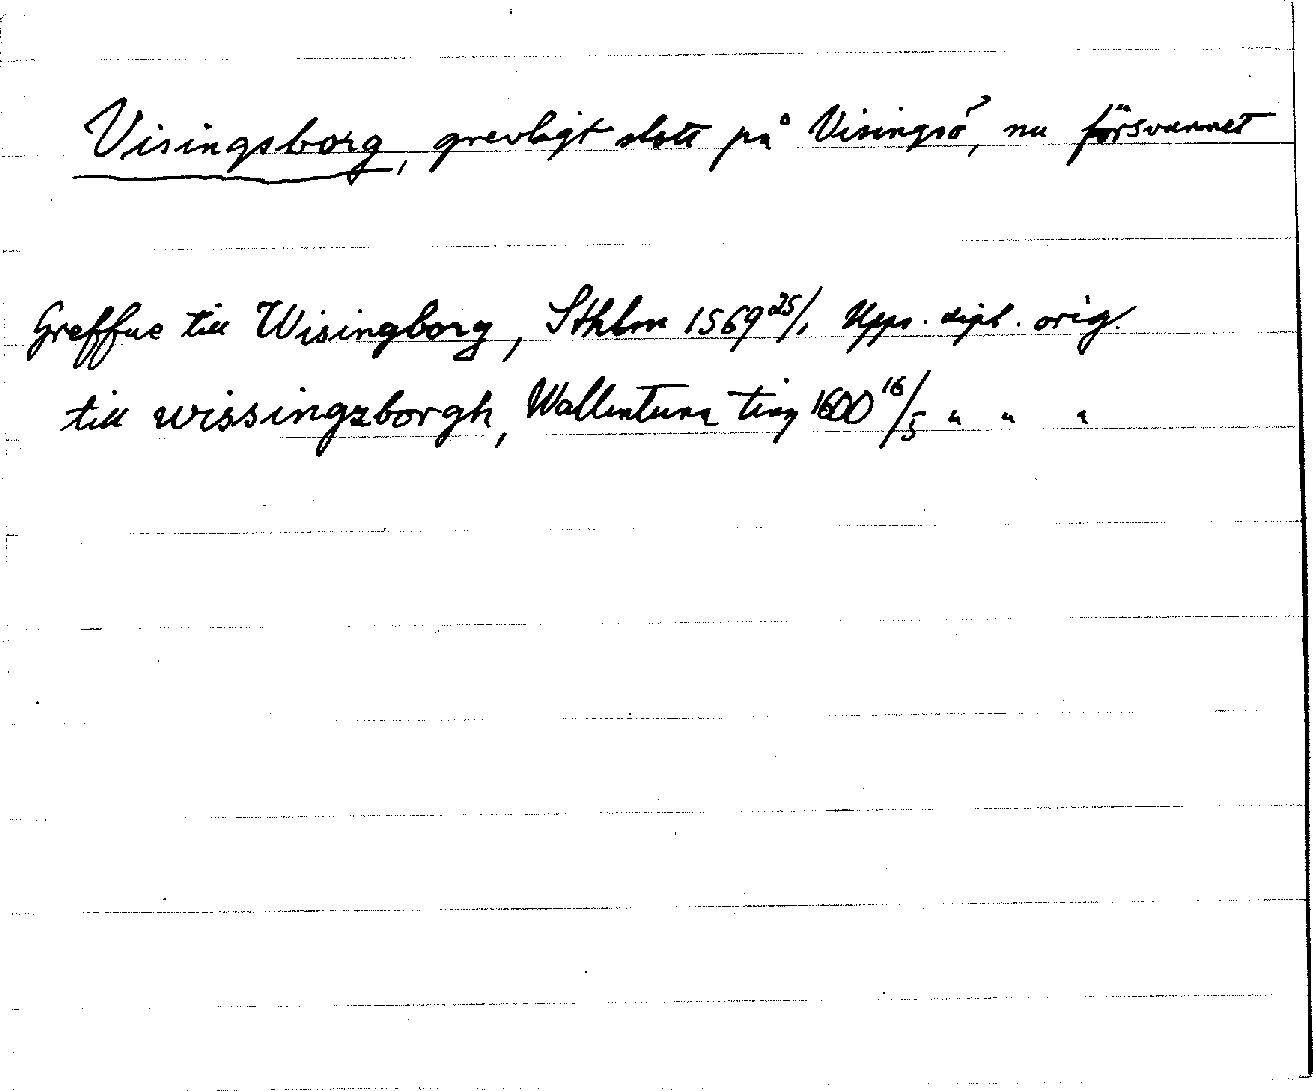 Visingsborg, grevligt slott på Visingsö, nu försvunnet
Greffue till Wisingborg, Sthlm 1569 25/1 Upps. dipl. orig.
till wissingzborgh, Wallentuna ting 1600 16/5 " " "